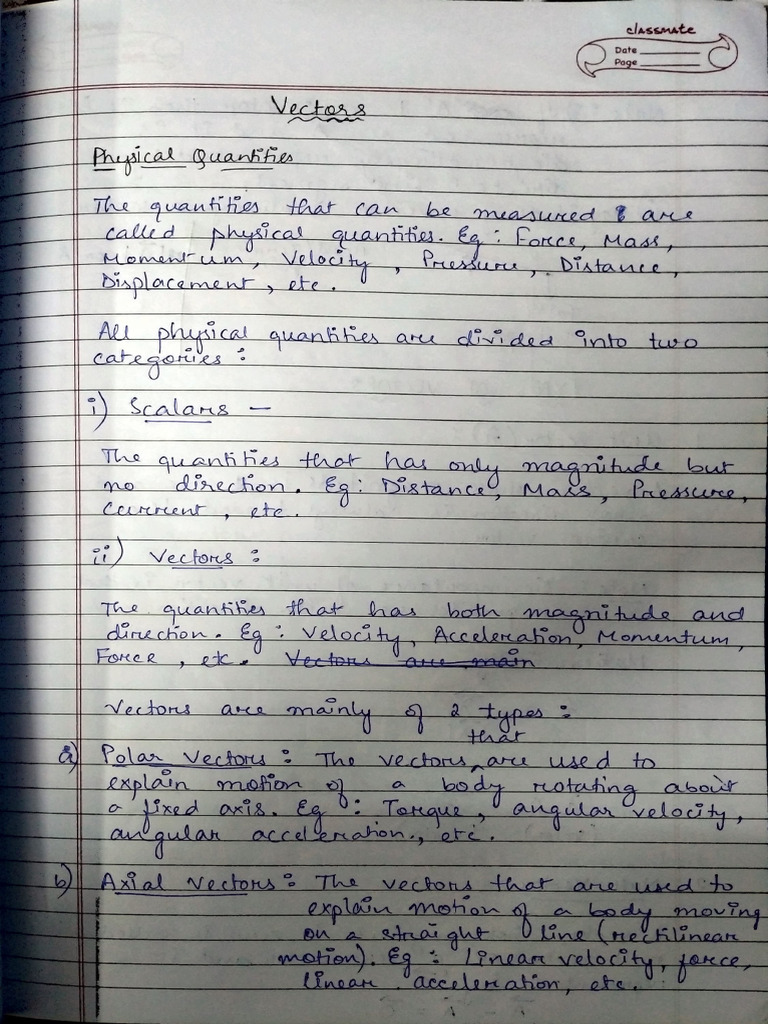 classmate
Date
Page
Vectors
Physical Quantities
The quantities that can be measured & are
called physical quantities. Eg : Force, Mass,
Momentum, Velocity, Pressure, Distance,
Displacement, etc.
All physical quantities are divided into two
categories :
i) Scalars -
The quantities that has only magnitude but
no direction. Eg : Distance, Mass, Pressure,
Current, etc.
ii) Vectors :
The quantities that has both magnitude and
direction. Eg : Velocity, Acceleration, Momentum,
Force, etc. Vectors are main
Vectors are mainly of 2 types :
that
a) Polar Vectors : The vectors are used to
explain motion of a body rotating about
a fixed axis. Eg : Torque, angular velocity,
angular acceleration., etc.
b) Axial Vectors : The vectors that are used to
explain motion of a body moving
on a straight line (rectilinear
motion). Eg : Linear velocity, force,
linear acceleration, etc.